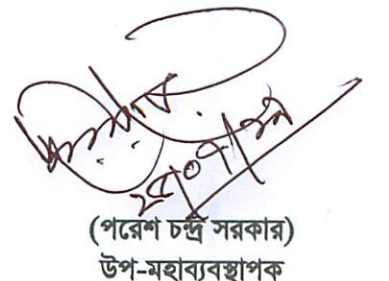 (পরেশ চন্দ্র সরকার)
উপ-মহাব্যবস্থাপক